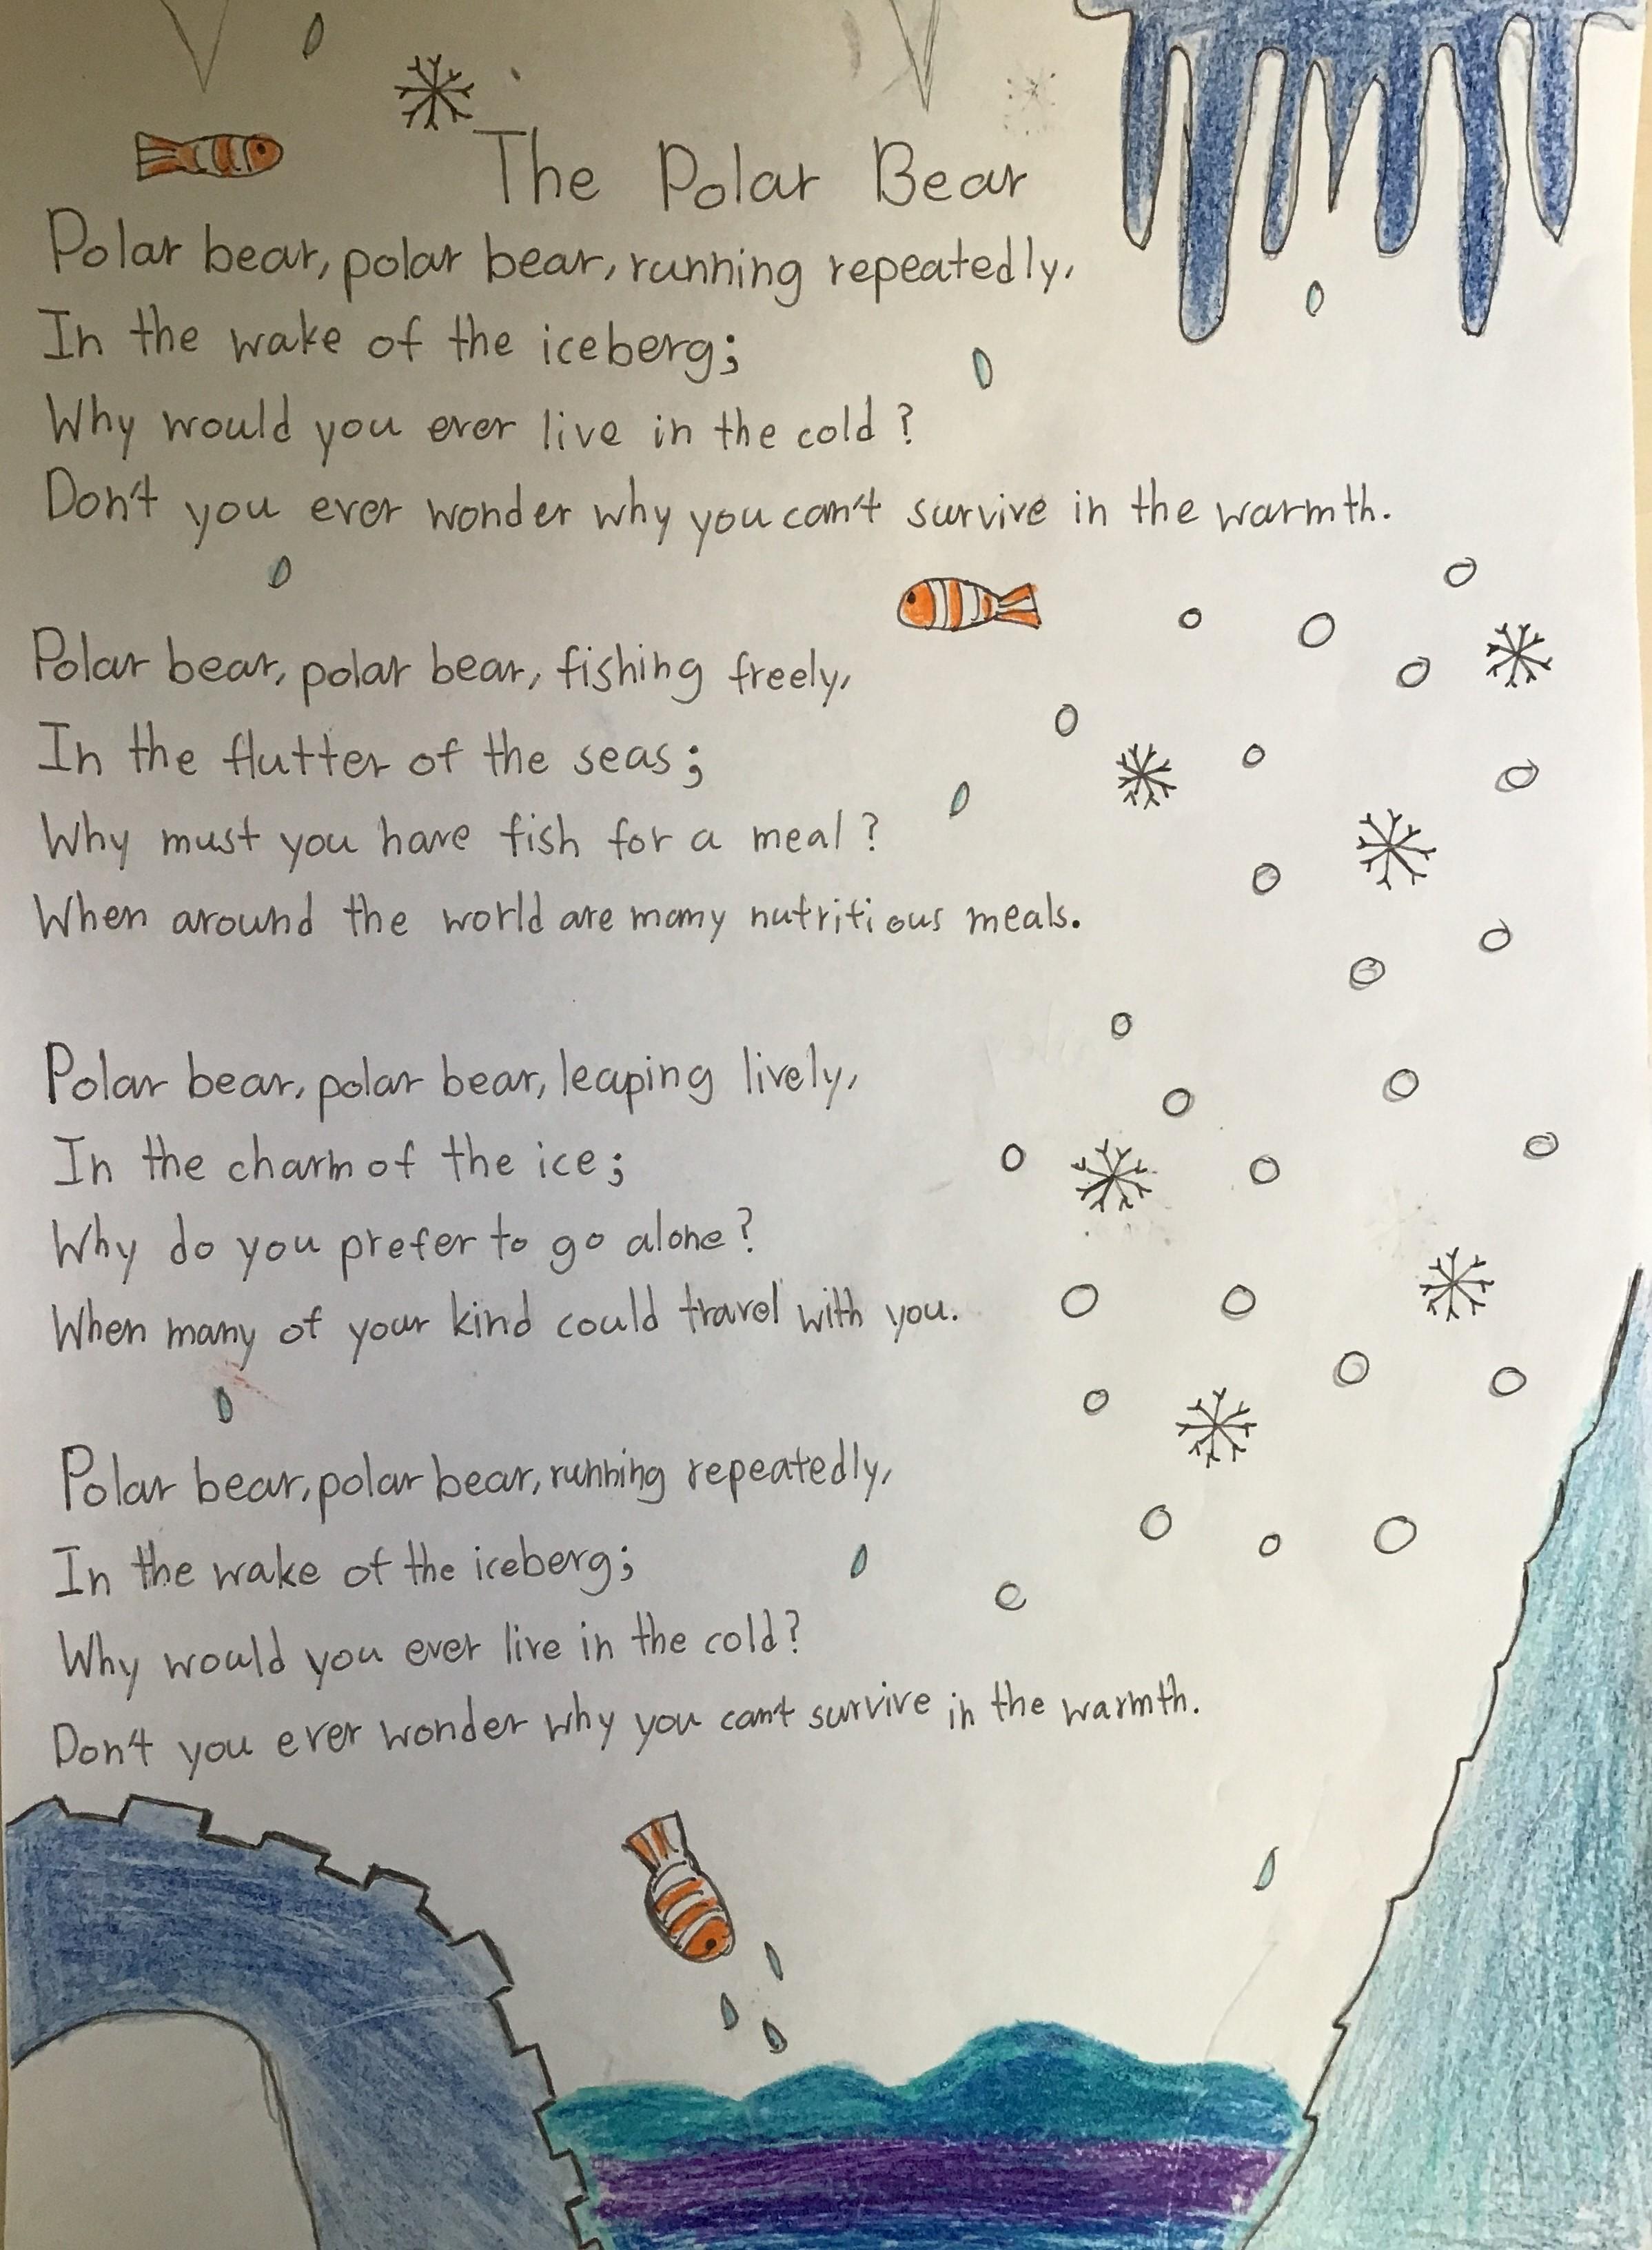 The Polar Bear
Polar bear, polar bear, running repeatedly,
In the wake of the iceberg;
Why would you ever live in the cold?
Don't you ever wonder why you can't survive in the warmth.
Polar bear, polar bear, fishing freely,
In the flutter of the seas;
Why must you have fish for a meal?
When around the world are many nutritious meals.
Polar bear, polar bear, leaping lively,
In the charm of the ice;
Why do you prefer to go alone?
When many of your kind could travel with you.
Polar bear, polar bear, running repeatedly,
In the wake of the iceberg;
Why would you ever live in the cold?
Don't you ever wonder why you can't survive in the warmth.